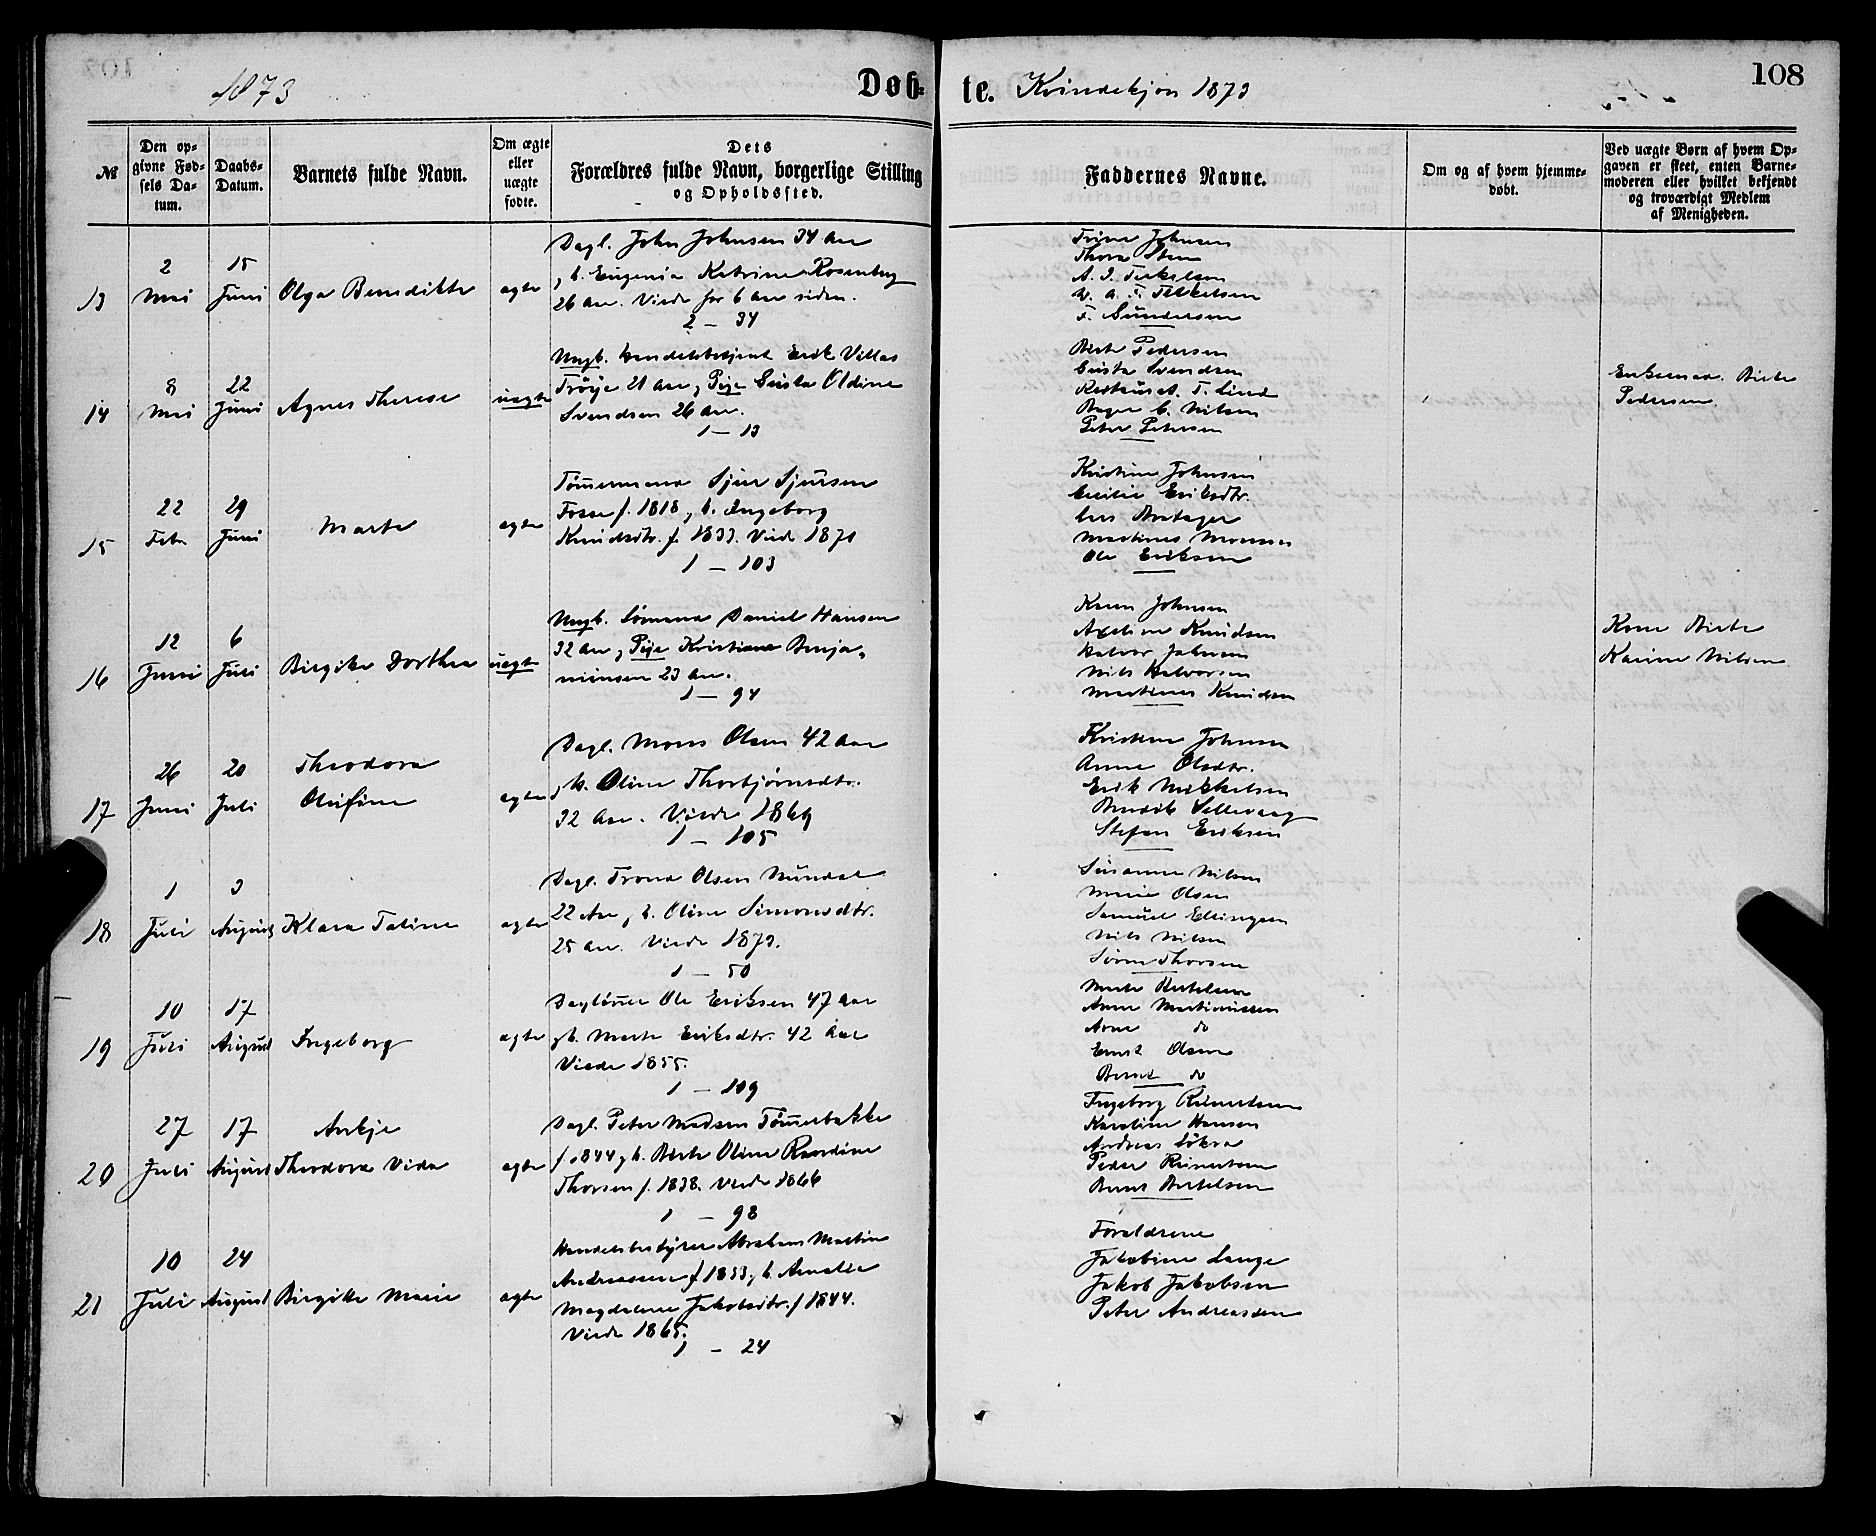 1873
Døb-
te.
Kvindekjøn 1873
108
№
Den op-
givne Fød-
sels Da-
tum.
Daabs-
Datum.
Barnets fulde Navn.
Om ægte
eller
uægte
fødte.
Dets
Forældres fulde Navn, borgerlige Stilling
og Opholdssted.
Faddernes Navne.
Om og af hvem hjemme-
døbt.
Ved uægte Børn af hvem Op-
gaven er skeet, enten Barne-
moderen eller hvilket bekjendt
og troværdigt Medlem
af Menigheden.
13
2
Mai
15
Juni
Olga Benedikte
ægte
Dagl. John Johnsen 34 Aar
g. h. Eugenia Katrine Rosenberg
26 Aar. Viede for 6 Aar siden.
2 – 34
Trine Johnsen
Thora
A. I. Terkelsen
F. Sundersen
14
8
Mai
22
Juni
Agnes Therese
uægte
Ungk. Handelsbetjent Erik Villas
Trøije 21 Aar, Pige Gusta Oldine
Svendsen 26 Aar.
1 – 13
Birte Pedersen
Gusta Svendsen
T. Lind
Bager C. Nilsen
Peter Petersen
Birte
Pedersen.
15
22
Febr
29
Juni
Marte
ægte
Tømmermand Sjur Sjursen
Fosse f. 1818, g. h. Ingeborg
Knudsdtr. f. 1833. Viede 1871
1 – 103
Kristine Johnsen
Cecilie Eriksdtr.
Martines Monsen
Ole Eriksen
16
12
Juni
6
Juli
Birgitte Dorthea
uægte
Ungk. Sømand Daniel Hansen
32 Aar, Pige Kristiane Benja-
minsen 23 Aar.
1 – 94
Karen Johnsen
Axeline Knudsen
Halvor Johnsen
Nils Halvorsen
Martines Knudsen
Kone Birte
Karine Nilsen
17
26
Juni
20
Juli
Theodora
Olufine
ægte
Dagl. Mons Olsen 42 Aar
g. h. Oline Thorbjørnsdtr.
32 Aar. Viede 1869
1 – 105
Kristine Johnsen
Anne Olsdtr.
Erik Mikkelsen
Bendik Sellevaag
Stefan Eriksen
18
1
Juli
3
August
Klara Taline
ægte
Dagl. Trond Olsen Mundal
22 Aar g. h. Oline Simonsdtr.
25 Aar. Viede 1873.
1 – 50
Susanne Nilsen
Marie Olsen
Samuel Ellingsen
Nils Nilsen
Søren Thorsen
19
10
Juli
17
August
Ingeborg
ægte
Dagløner Ole Eriksen 47 Aar
g. h. Marte Eriksdtr. 42 Aar
Viede 1855.
1 – 109
Marte Bertelsen
Anne Martinussen
Arne do
Ernst Olsen
Bernt do
20
27
Juli
17
August
Ankje
Theodora Vida
ægte
Dagl. Peter Madsen Tømmerbakke
f. 1844 g. h. Birte Oline Randine
Thorsen f. 1838. Viede 1866
1 – 98
Ingeborg Reinertsen
Karoline Hansen
Andreas Løkra
Peder Reinertsen
Bernt Bertelsen
21
10
Juli
24
August
Birgitte Marie
ægte
Handelsbestyrer Abraham Martin
Andreassen f. 1833, g. h. Amalie
Magdalene Jakobsdtr. f. 1844.
Viede 1865.
1 – 24
Forældrene
Jakobine Lange
Jakob Jakobsen
Peter Andreassen